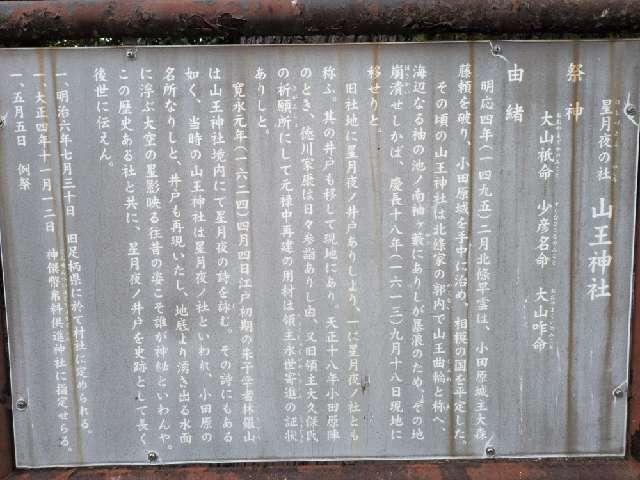 星月夜の社 山王神社
祭神
大山祇命 少彦名命 大山咋命
由緒
明応四年(一四九五)二月北條早雲は、小田原城主大森
藤頼を破り、小田原城を手中に治め、相模の国を平定した。
その頃の山王神社は北條家の郭内で山王曲輪と称へ、
海辺なる袖の池ノ南袖ヶ藪にありしが暴浪のため、その地
崩潰せしかば、慶長十八年(一六一三)九月十八日現地に
移せりと。
旧社地に星月夜ノ井戸ありしより、一に星月夜ノ社とも
称ふ。其の井戸も移して現地にあり。天正十八年小田原陣
のとき、徳川家康は日々参詣ありし由、又旧領主大久保氏
の祈願所にして元禄中再建の用材は領主永世寄進の証状
ありしと。
寛永元年(一六二四)四月四日江戸初期の朱子学者林羅山
は山王神社境内にて星月夜の詩を詠む。その詩にもある
如く、当時の山王神社は星月夜ノ社といわれ、小田原の
名所なりしと、井戸も再現いたし、地底より湧き出る水面
に浮ぶ大空の星影映る往昔の姿こそ誰が神秘といわんや。
この歴史ある社と共に、星月夜ノ井戸を史跡として長く
後世に伝えん。
一、明治六年七月三十日 旧足柄県に於て村社に定められる。
一、大正四年十一月十二日 神饌幣帛料供進神社に指定せらる。
一、五月五日 例祭